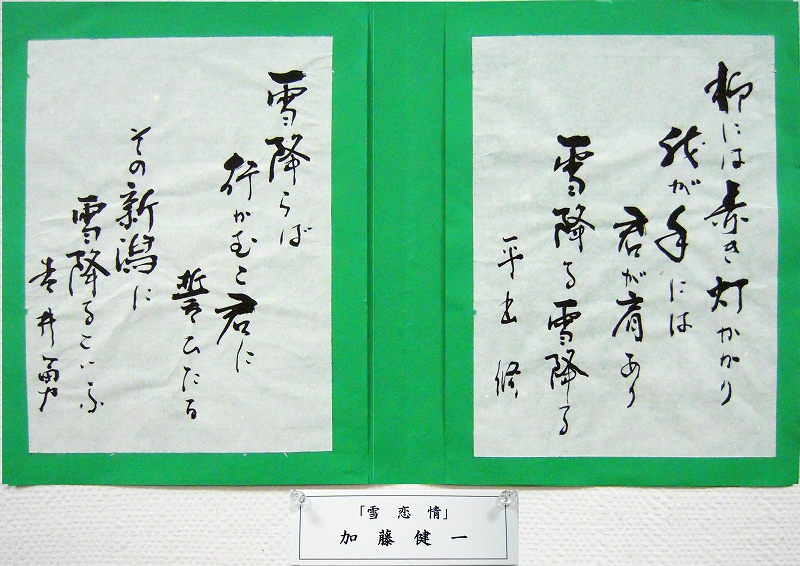 柳には赤き灯かかり
我が手には
君が肩あり
雪降る雪降る
平出修
雪降らば
行かむと君に
誓ひたる
その新潟に
雪降るといふ
吉井勇
「雪恋情」
加藤健一